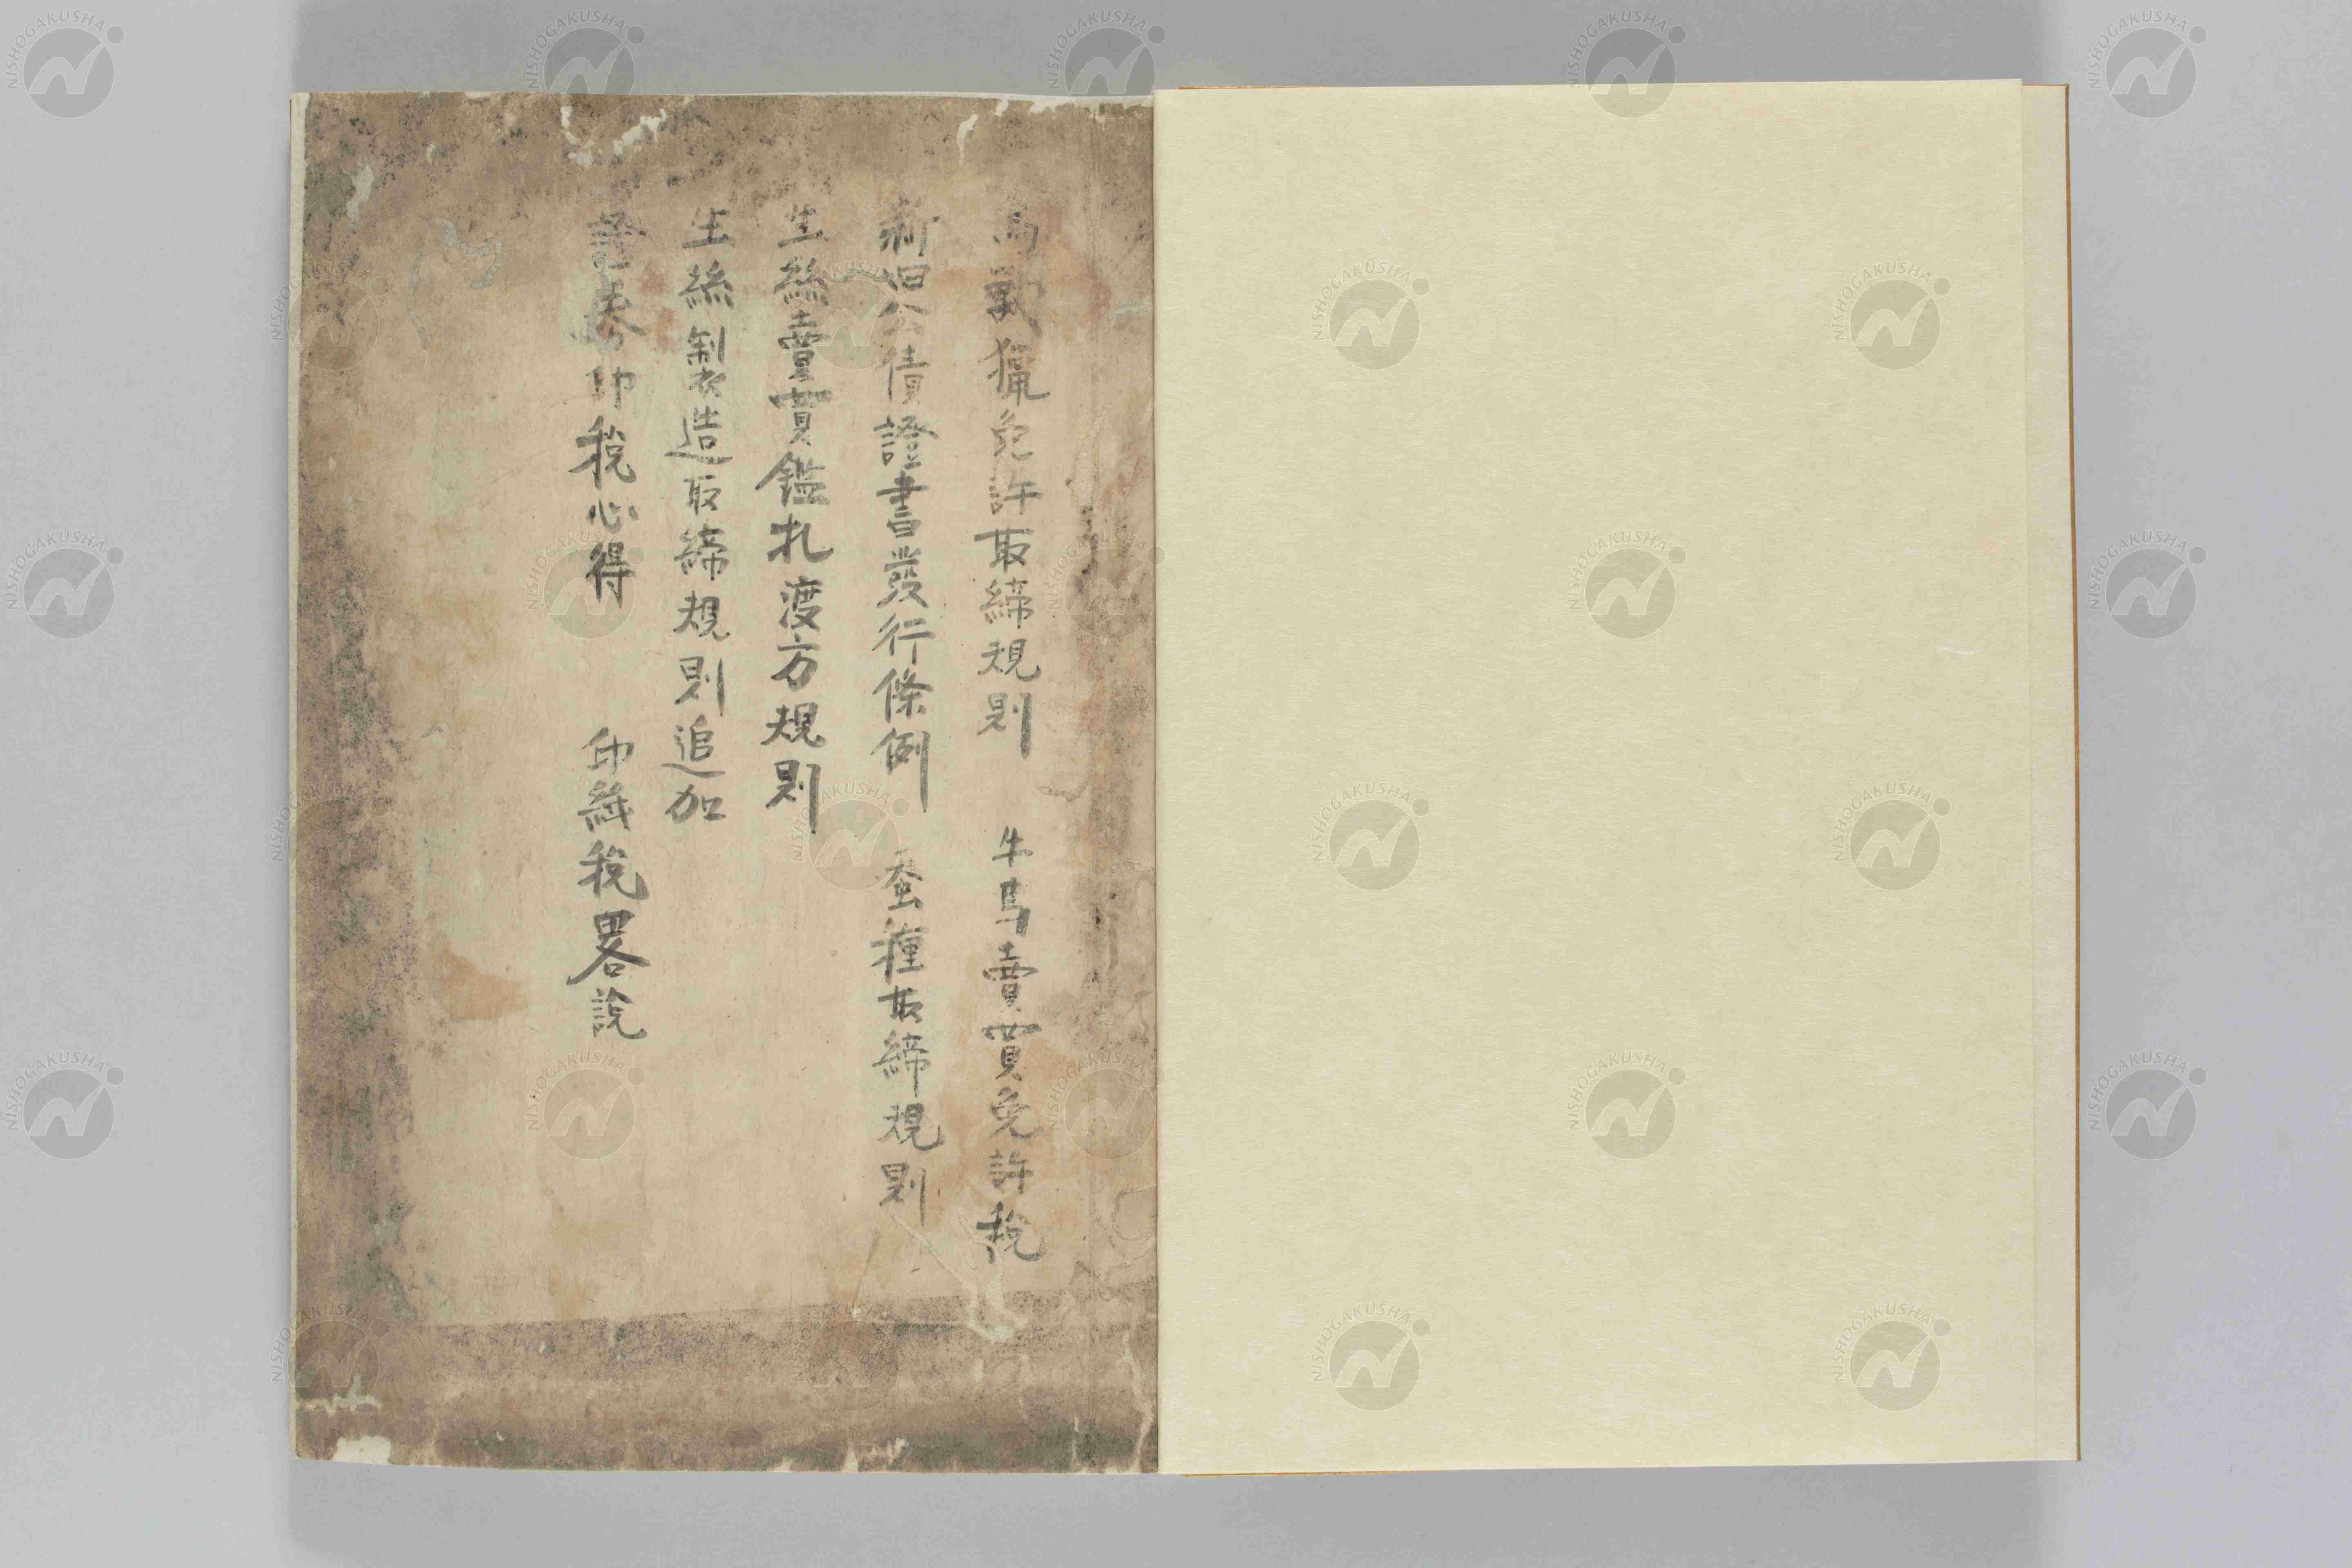 鳥獸獵免許取締規則　牛馬賣買免許稅
新旧公債證書發行條例　蚕種取締規則
生絲賣買鑑札渡方規則
生絲製造取締規則追加
證券印稅心得　印紙稅畧說
NISHOGAKUSHA